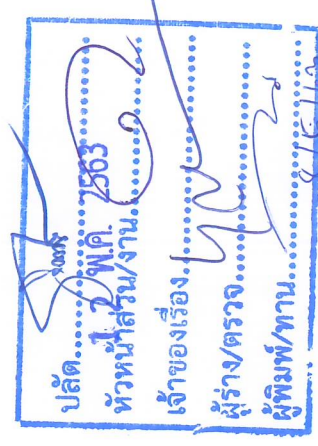 ปลัด....................
1 2 พ.ค. 2563
หัวหน้าส่วน/งาน....................
เจ้าของเรื่อง....................
ผู้ร่าง/ตรวจ....................
ผู้พิมพ์/ทาน....................